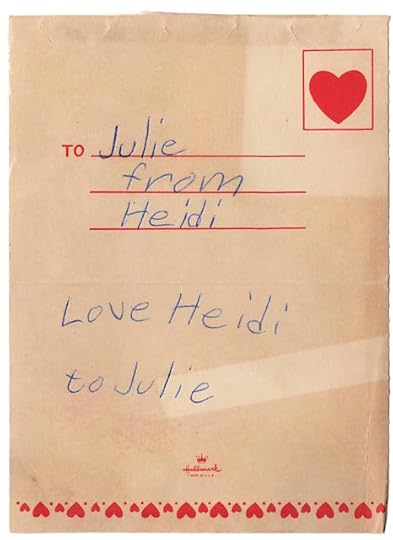 TO Julie
from
Heidi
Love Heidi
to Julie
Hallmark
MADE IN U.S.A.